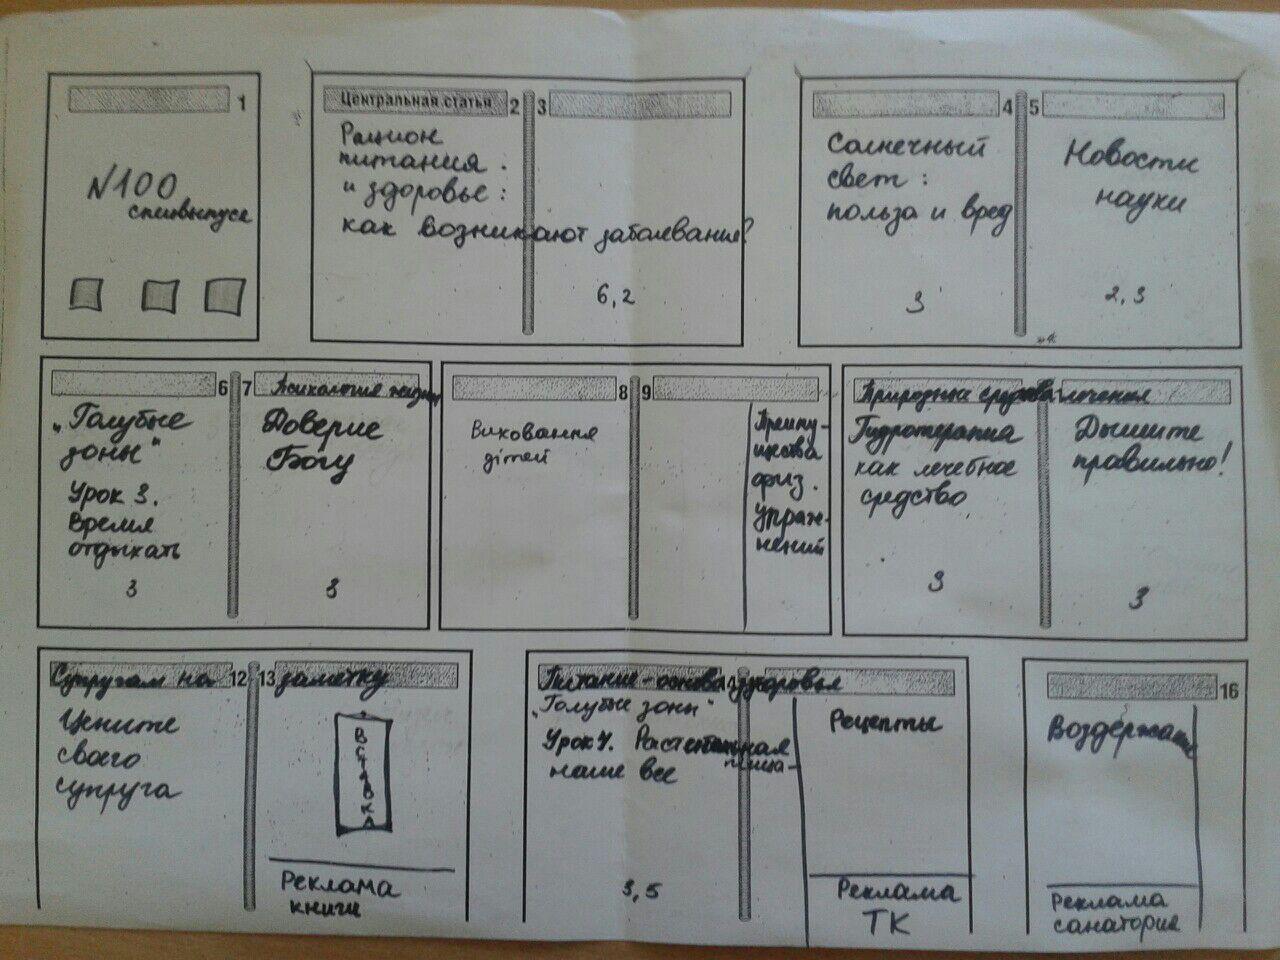 1
№100
спецвыпуск
Центральная статья 2
3
Рацион
питания
и здоровье:
как возникают заболевания?
6,2
4
Солнечный
свет:
польза и вред
3
5
Новости
науки
2,3
6
„Голубые
зоны"
Урок 3.
Время
отдыхать
3
7 Психология жизни
Доверие
Богу
3
8
Виховання
дітей
9
Преиму-
щества
физ.
упраж-
нений
Природные средства лечения
Гидротерапия
как лечебное
средство
3
Дышите
правильно!
3
Супругам на 12 13 заметку
Цените
своего
супруга
ВСТАВКА
Реклама
книги
Питание-основа здоровья
„Голубые зоны"
Урок 4. Растительная
пища-
наше все
3,5
Рецепты
Реклама
ТК
16
Воздержание
Реклама
санатория